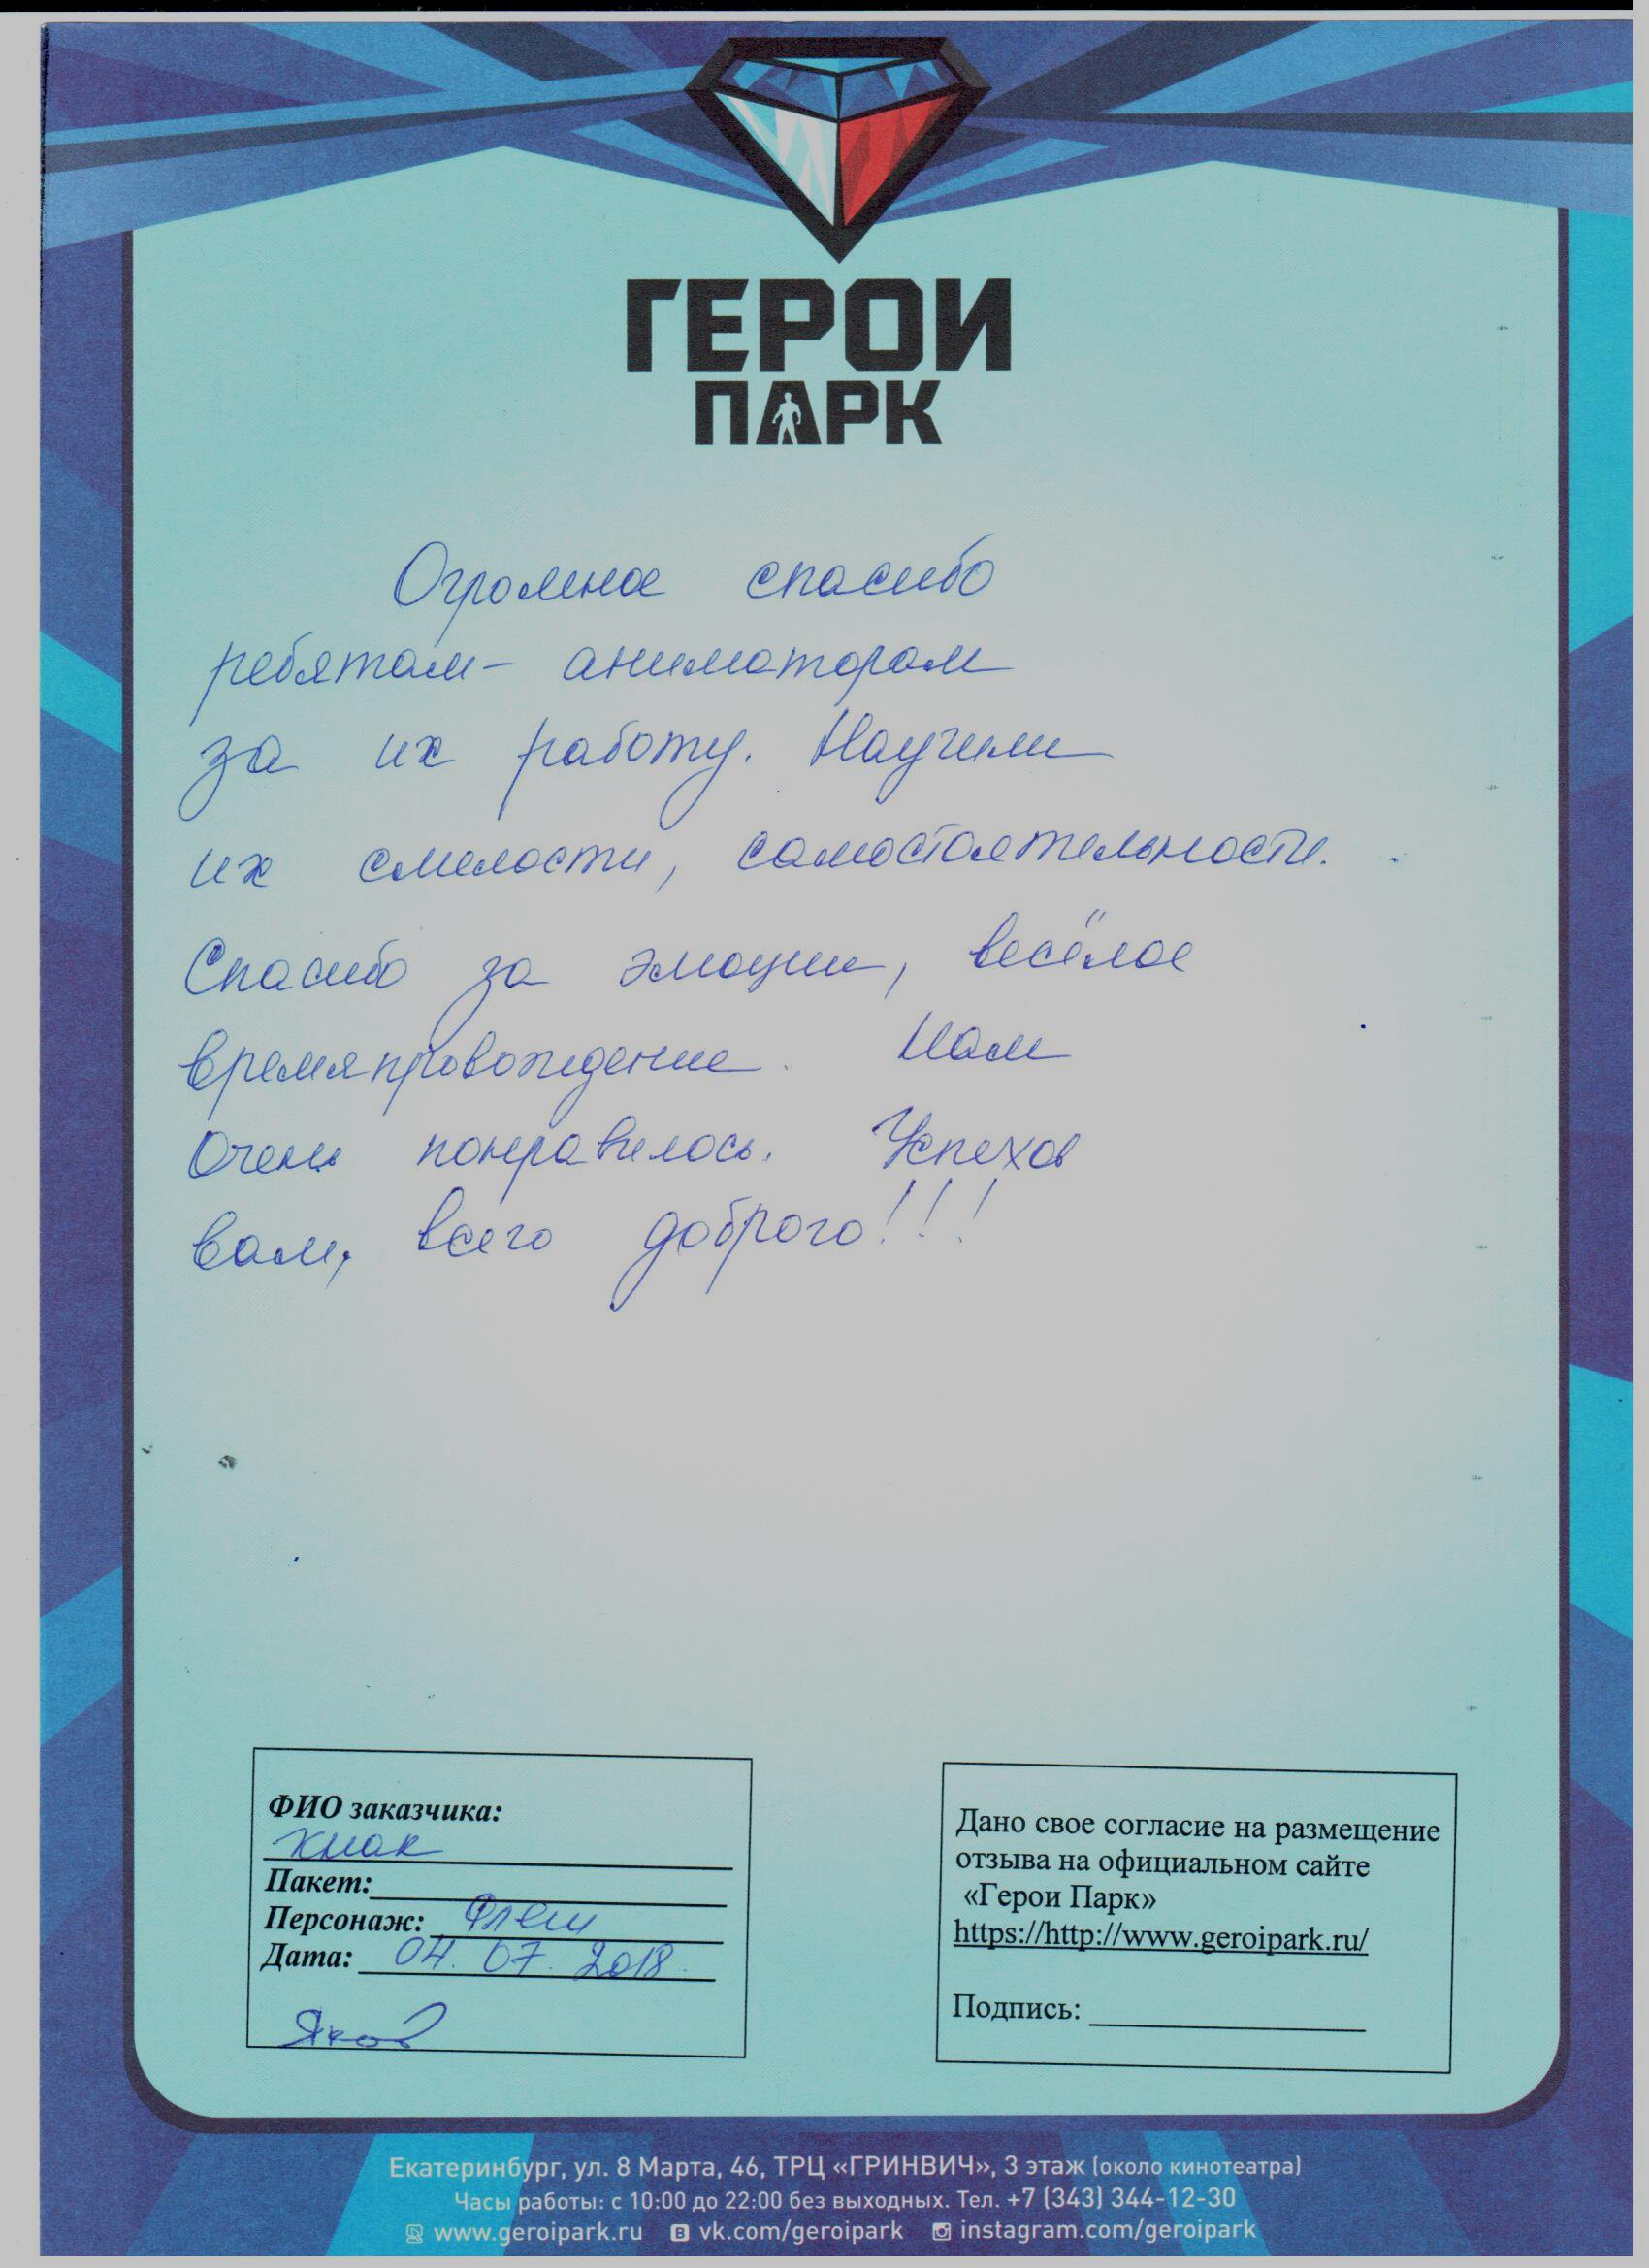 ГЕРОИ
ПАРК
Огромное спасибо
ребятам- аниматорам
за их работу. Научили
их смелости, самостоятельности.
Спасибо за эмоции, весёлое
времяпровождение. Нам
Очень понравилось. Успехов
вам, всего доброго!!!
ФИО заказчика:
Пакет:
Персонаж: Флеш
Дата: 04.07.2018
Дано свое согласие на размещение
отзыва на официальном сайте
«Герои Парк»
https://http://www.geroipark.ru/
Подпись:
Екатеринбург, ул. 8 Марта, 46, ТРЦ «ГРИНВИЧ», 3 этаж (около кинотеатра)
Часы работы: с 10:00 до 22:00 без выходных. Тел. +7 (343) 344-12-30
www.geroipark.ru vk.com/geroipark instagram.com/geroipark